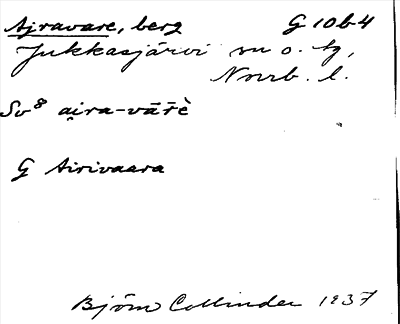 Ajravare, berg G 10b-4
Jukkasjärvi sn o. tg,
Norrb. l.
Sv⁸ ai̯ra-vārè
G Airivaara
Björn Collinder 1937